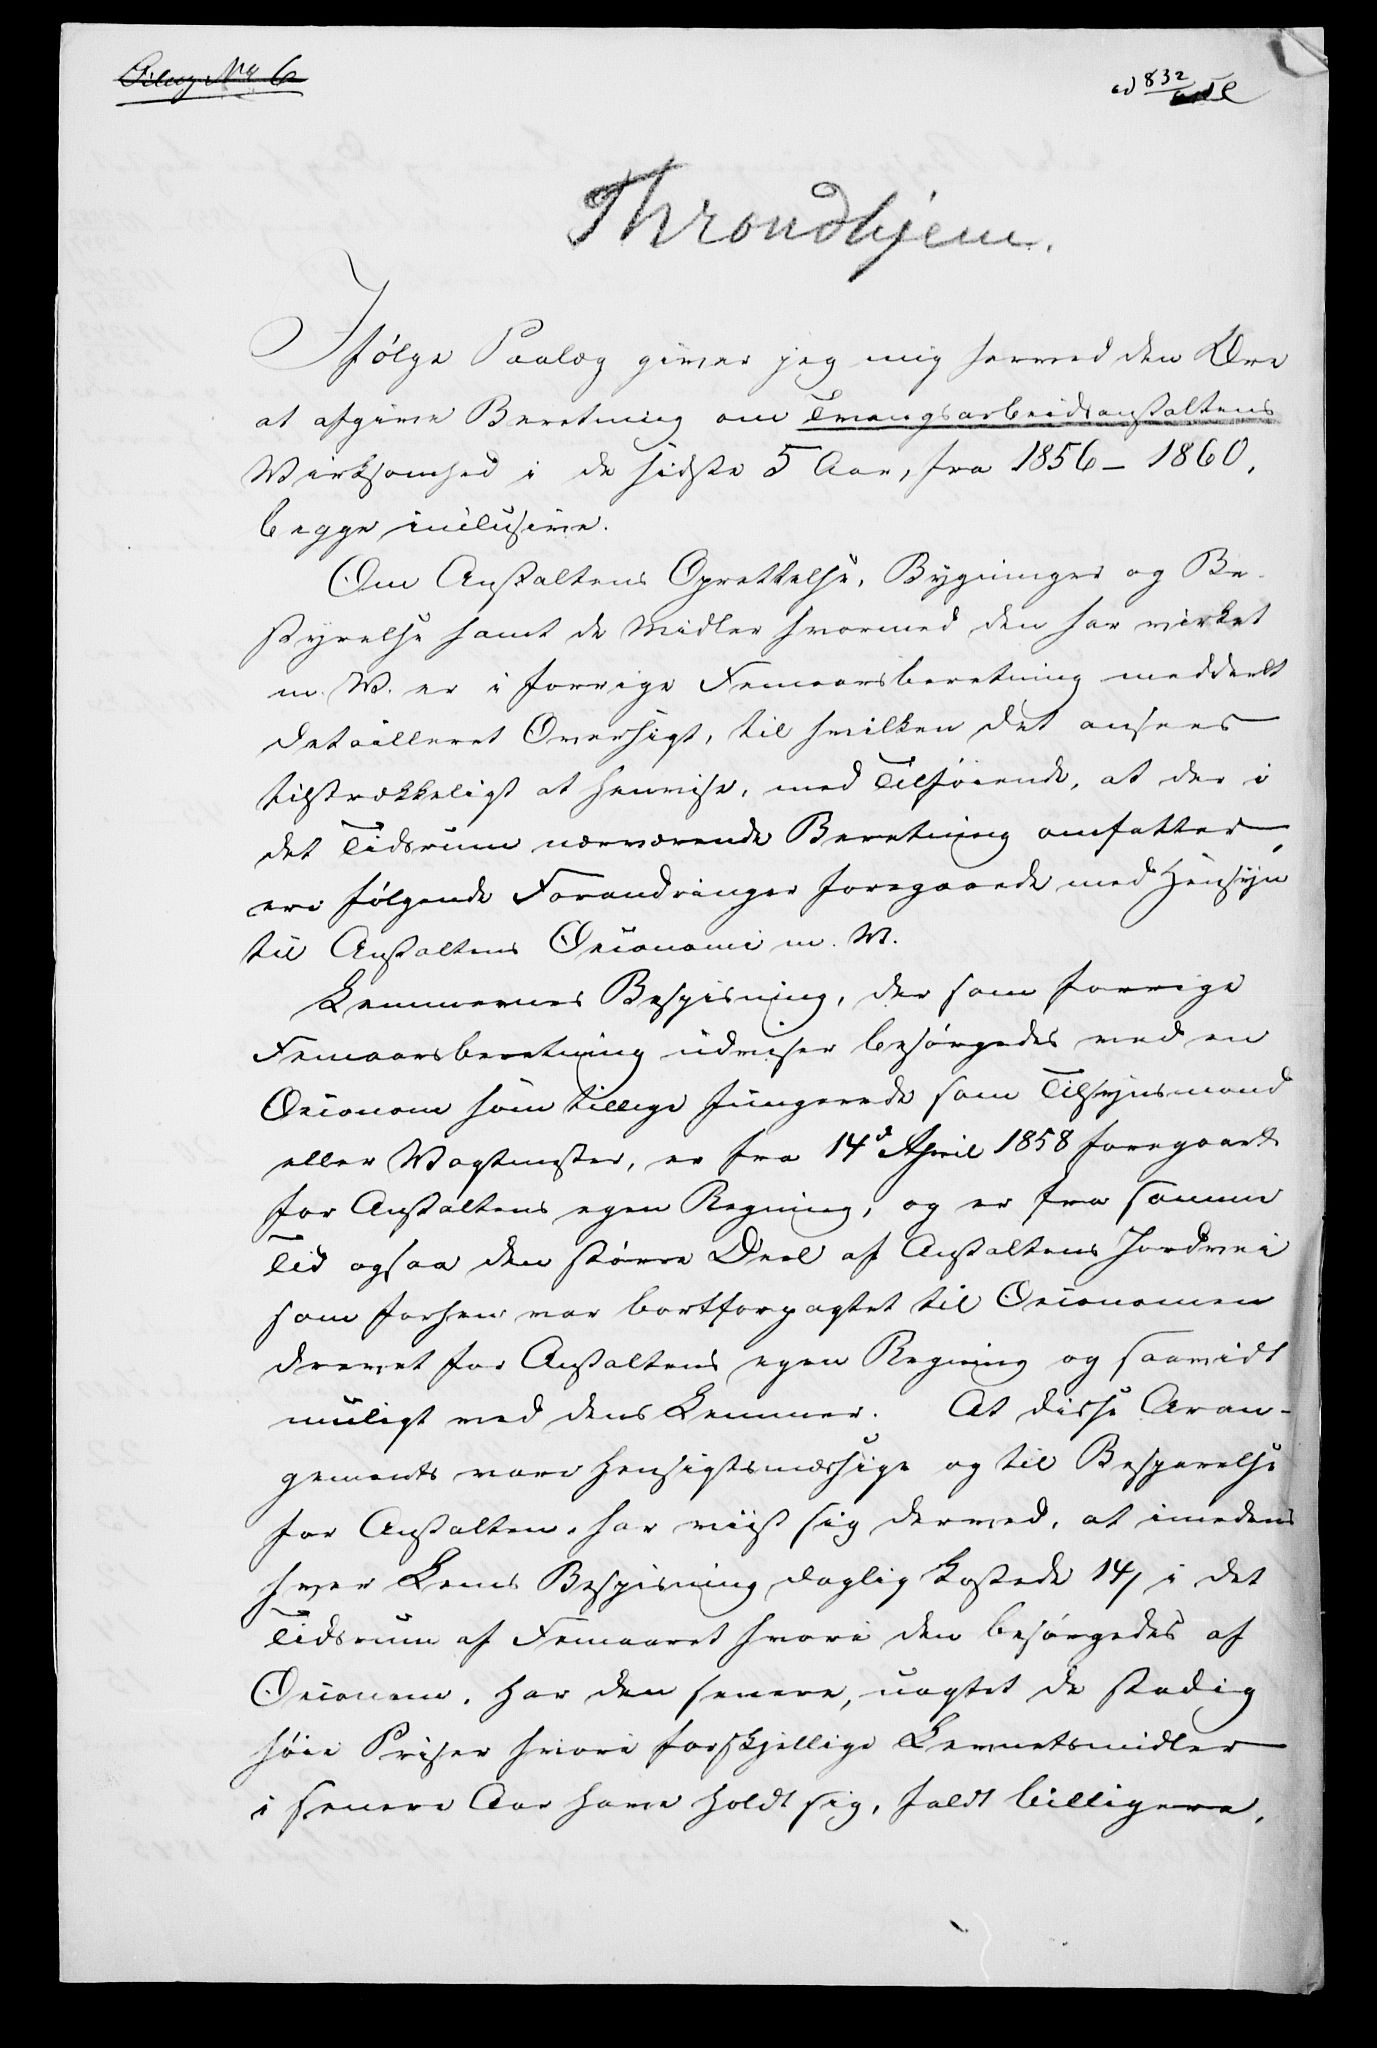 Bilag No 6
ad 832
Throndhjem.
Ifølge Paalæg giver jeg mig herved den Ære
at afgive Beretning om Tvangsarbeidsanstaltens
Virksomhed i de sidste 5 Aar, fra 1856 – 1860,
begge inclusive.
Om Anstaltens Oprettelse, Bygninger og Be-
styrelse samt de Midler hvormed den har virket
m. V. er i forrige Femaarsberetning meddeelt
detailleret Oversigt, til hvilken det ansees
tilstrækkeligt at henvise, med Tilføiende, at der i
det Tidsrum nærværende Beretning omfatter,
ere følgende Forandringer foregaaede med Hensyn
til Anstaltens Øconomi m. V.
Lemmernes Bespisning, der som forrige
Femaarsberetning udviser besørgedes ved en
Øconom som tillige fungerede som Tilsynsmand
eller Vagtmester, er fra 14d April 1858 foregaaet
for Anstaltens egen Regning, og er fra samme
Tid ogsaa den større Deel af Anstaltens Jordvei
som forhen var bortforpagtet til Øconomen
drevet for Anstaltens egen Regning og saavidt
muligt ved dens Lemmer. At disse Aran-
gements vare hensigtsmæssige og til Besparelse
for Anstalten, har viist sig derved, at imedens
hver Lems Bespisning daglig kostede 14 / i det
Tidsrum af Femaaret hvori den besørgedes af
Øconom, har den senere, uagtet de stadig
høie Priser hvori forskjellige Levnetsmidler
i senere Aar have holdt sig, faldt billigere,